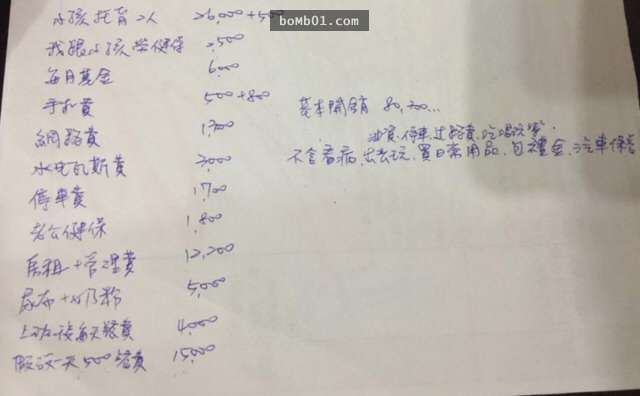 boMb01.com
小孩托育2人 26,000+500
我跟小孩勞健保 2,500
每月基金 6,000
手機費 500+800
基本開銷 80,200...
網路費 1,300
油資、停車、過路費、吃喝玩樂
水电瓦斯費 3,000
不含看病、出去玩、買日常用品、包禮金、汽車保養
停車費 1,700
老公健保 1,800
房租+管理費 12,200
尿布+奶粉 5,000
上班後每天餐費 4,000
假設一天500餐費 15,000